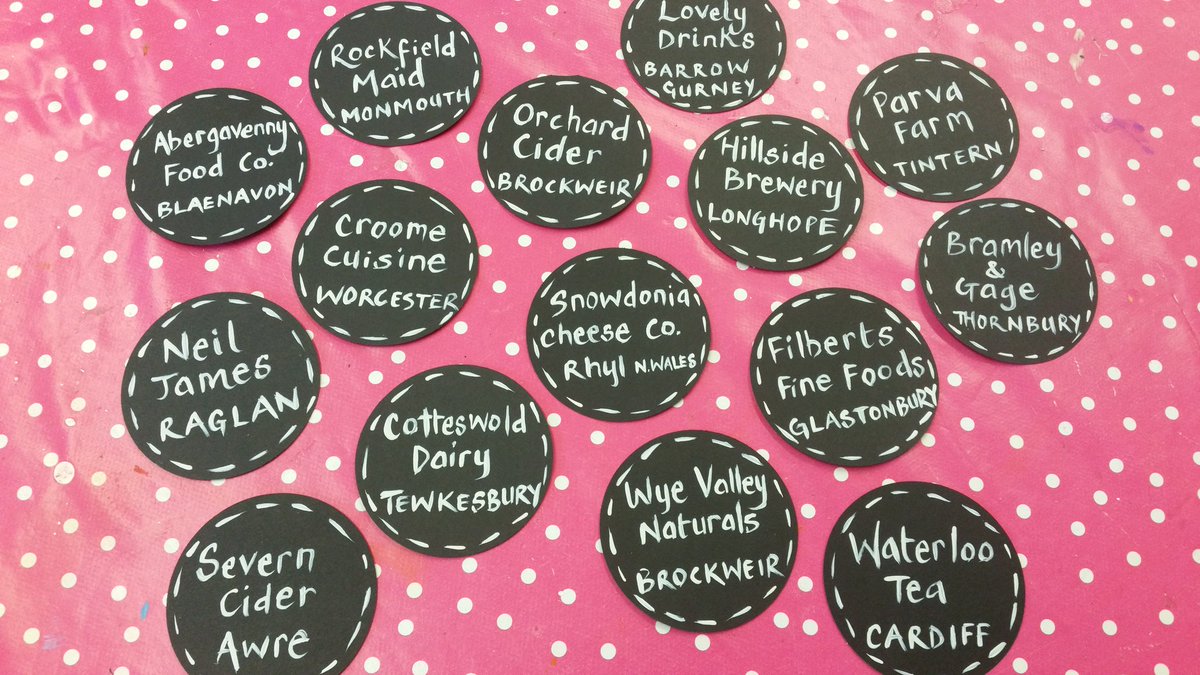 Rockfield
Maid
MONMOUTH
Lovely
Drinks
BARROW
GURNEY
Abergavenny
Food Co.
BLAENAVON
Orchard
Cider
BROCKWEIR
Hillside
Brewery
LONGHOPE
Parva
Farm
TINTERN
Croome
Cuisine
WORCESTER
Snowdonia
Cheese Co.
Rhyl N.WALES
Bramley
&
Gage
THORNBURY
Neil
James
RAGLAN
Filberts
Fine Foods
GLASTONBURY
Cotteswold
Dairy
TEWKESBURY
Wye Valley
Naturals
BROCKWEIR
Severn
Cider
Awre
Waterloo
Tea
CARDIFF